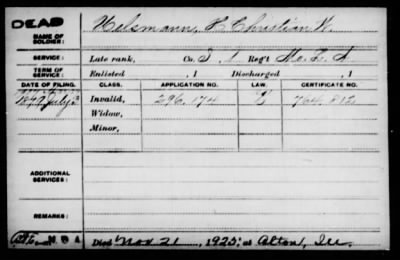 DEAD
NAME OF SOLDIER: Helsmann, H. Christian W.
SERVICE: Late rank, Co. I, 1 Reg't Mo. L. A.
TERM OF SERVICE: Enlisted , 1 Discharged , 1
DATE OF FILING. CLASS. APPLICATION NO. LAW. CERTIFICATE NO.
1879 July 2 Invalid, 296.174
Widow,
Minor,
ADDITIONAL SERVICES:
REMARKS:
Died Nov. 21, 1925; at Alton, Ill.